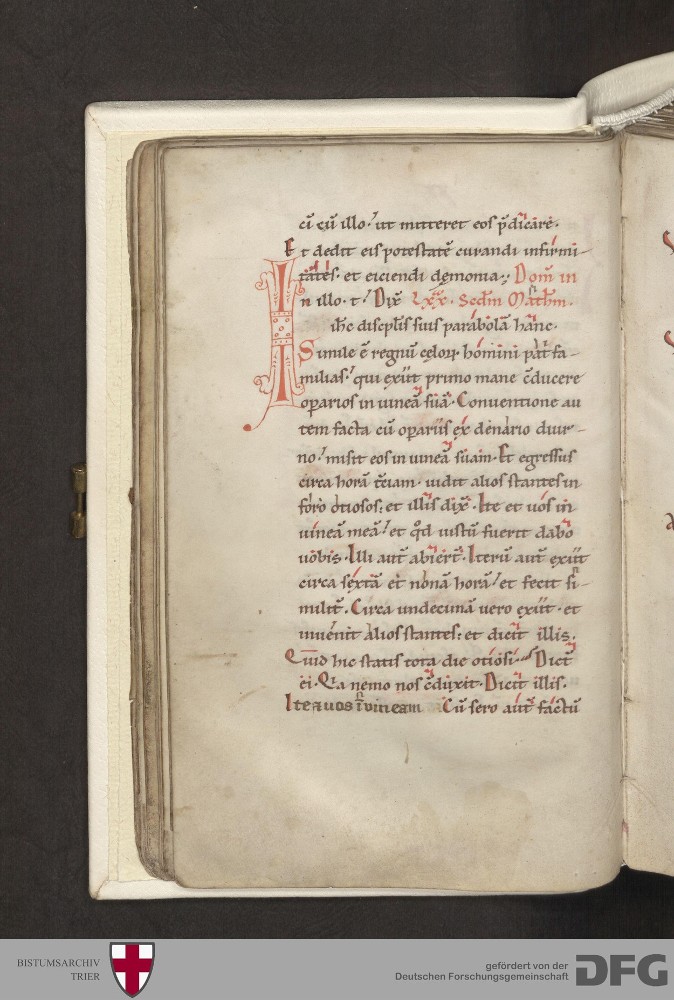 cū eū illo. ut mitteret eos p̄dicare.
Et dedit eis potestatē curandi infirmi-
tates. et eiciendi dęmonia. Dom̄ in
In illo. t. Dix̄ Lxx. Scdm̄ Mathm̄.
ih̄c discipl̄is suis parabolā hanc.
Simile ē regnū cęloꝝ homini pat̄ fa-
milias. qui exiit primo mane c̄ducere
oꝑarios in uineā suā. Conuentione au
tem facta cū oꝑariis ex denario diur-
no. misit eos in uineā suam. Et egressus
circa horā t̄ciam. uidit alios stantes in
foro otiosos. et illis dix̄. Ite et uos in
uineā meā. et qd̄ iustū fuerit dabo
uobis. Illi aut̄ abiert̄. Iterū aut̄ exiit
circa sextā et nonā horā. et fecit si-
milit̄. Circa undecimā uero exiit. et
inuenit alios stantes. et dicit illis.
Quid hic statis tota die otiosi. Dict̄
ei. Qia nemo nos c̄duxit. Dicit illis.
Ite et uos ī uineam Cū sero aut̄ factū
BISTUMSARCHIV
TRIER
gefördert von der
Deutschen Forschungsgemeinschaft
DFG